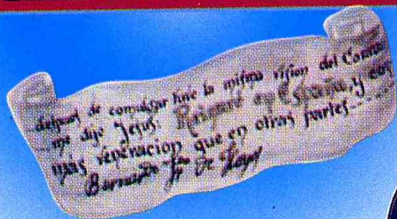 despues de comulgar tuve la misma vision del Corazon
me dijo Jesus: Reinaré en España, y con
mas veneracion que en otras partes
Bernardo Fco De Hoyos